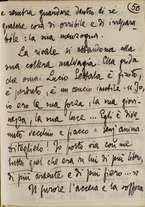 60
e sembra guardare dentro di sé
qualche cosa di orribile e di inespiabile: la mia menzogna.
La rivale si abbandona alla
sua collera malvagia. Alla
che ormai Lucio Settala è finito,
è perduto, è un amico imbelle: «io,
io ero la sua forza, la sua giovinezza,
la sua luce... Egli è divenuto
vecchio e fiacco
Io porto via con me
tutto quel che era in lui di più libero,
di più ardente e di più fiero...»
Il furore l'accesa e la soffoca